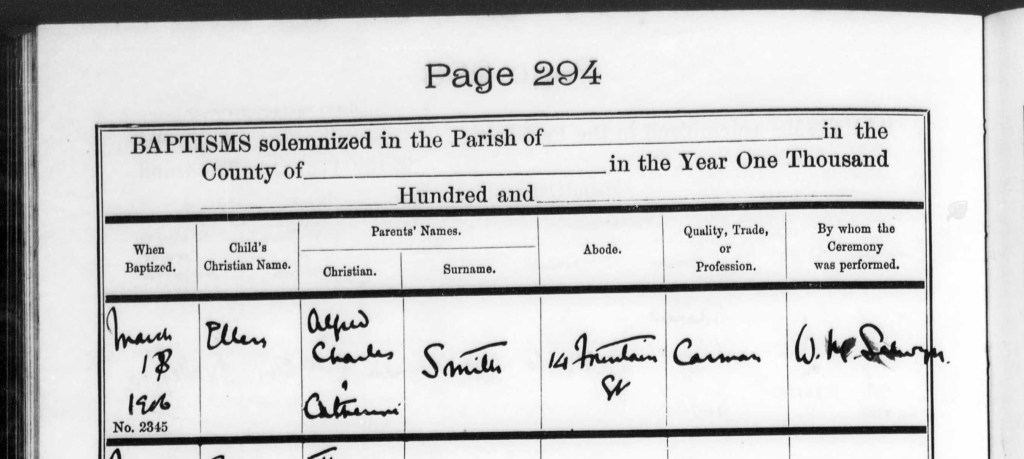 Page 294
BAPTISMS solemnized in the Parish of in the
County of in the Year One Thousand
Hundred and
When Baptized.
Child's Christian Name.
Parents' Names.
Christian.
Surname.
Abode.
Quality, Trade, or Profession.
By whom the Ceremony was performed.
March
1906
No. 2345
Ellen
Alfred
Charles
&
Catherine
Smith
14 Fountain
St
Carman
W.